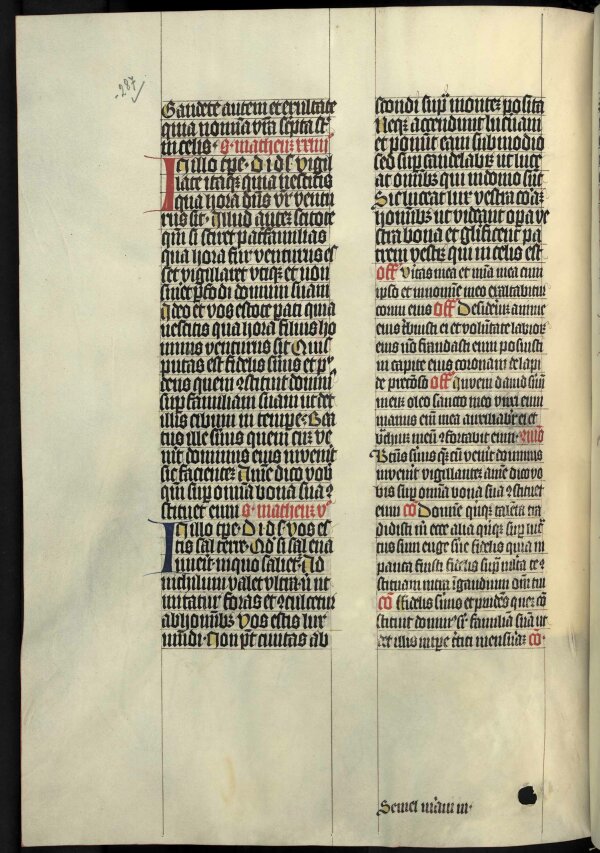 287
Gaudete autem et exultate
quia noi͞a vr͞a scͥpta st͞
in celis · S· matheuz xxiiij
In illo tp͞e · D· i· d· s· vigi
late itaqꝫ quia nescitis
qua hora dn͞s vr͞ ventu
rus sit · Illud autez scitote
qm͞ si sciret pat͛familias
qua hora fur venturus es
set vigilaret vtiqꝫ et non
sineret ꝑfodi domum suam
Ideo et vos estote ꝑati quia
nescitis qua hora filius ho
minis venturus sit Quis
putas est fidelis s͛uus et pͬ
dens quem ꝯstituit domin͛
sup͛ familiam suam ut det
illis cibum in tempe͛ · Bea
tus ille s͛uus quem cuꝫ ve
n͛it dominus eius inven͛it
sic facientez Ame͞ dico vob͛
qm͞ sup͛ omi͞a bona sua ꝯ
stituet eum S· matheuz v
In illo tp͞e · D· i· d· s· vos es
tis sal terre · Qd͛ si sal eua
nuerit in quo salietͬ · Ad
nichilum valet vltra nͥ ut
mittatur foras et ꝯculcetur
ab hoi͞bꝫ Vos estis lux
mu͞di · Non pt͞ ciuitas ab
scondi sup͛ montez posita
Neqꝫ accendunt lucernam
et ponunt eam sub modio
sed sup͛ candelabꝝ ut luce
at omi͞bꝫ qui in domo su͞t
Sic luceat lux vestra coraꝫ
homi͞bꝫ ut videant opa͛ ve
stra bona et glificent pa
trem vestꝝ qui in celis est
Off͛ Veritas mea et mi͞a mea cum
ipso et in nomine meo exaltabitur
cornu eius Off͛ Desideriu͞ anime
eius tribuisti ei et volu͞tate labioꝝ
eius no͞ fraudasti eum posuisti
in capite eius coronam de lapi
de precioso Off͛ Inveni dauid s͛uu͞
meu͞ oleo sancto meo vnxi eum
manus eni͞ mea auxiliabitͬ ei et
brachiu͞ meu͞ ꝯfortabit eum ·
Bt͞us s͛uus que͞ cu͞ ven͛it dominus
inven͛it vigilantez ame͞ dico vo
bis sup͛ omi͞a bona sua ꝯstituet
eum co͞ Domine qui͞qꝫ talenta t
didisti m͛ ecce alia qui͞qꝫ sup͛ luc͛
tus sum euge s͛ue fidelis quia in
pauca fuisti fidelis sup͛ m͛ta te ꝯ
stituam intra i͞ gaudium dn͞i tui
co͞ Fidelis s͛uus et prude͞s que͞ co͞
stituit domin͛ sr͛ familia͞ sua͞ ut
det illis in tp͞e tͥtici mensuraꝫ co͞·